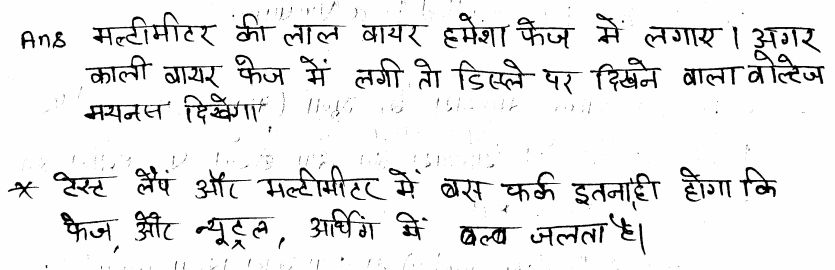 Ans मल्टीमीटर की लाल वायर हमेशा फेज में लगाए। अगर
काली वायर फेज में लगी तो डिस्ले पर दिखने वाला वोल्टेज
मयनस दिखेगा
* टेस्ट लैंप और मल्टीमीटर में बस फर्क इतनाही होगा कि
फेज, और न्यूट्रल, अर्थिंग में बल्ब जलता है।